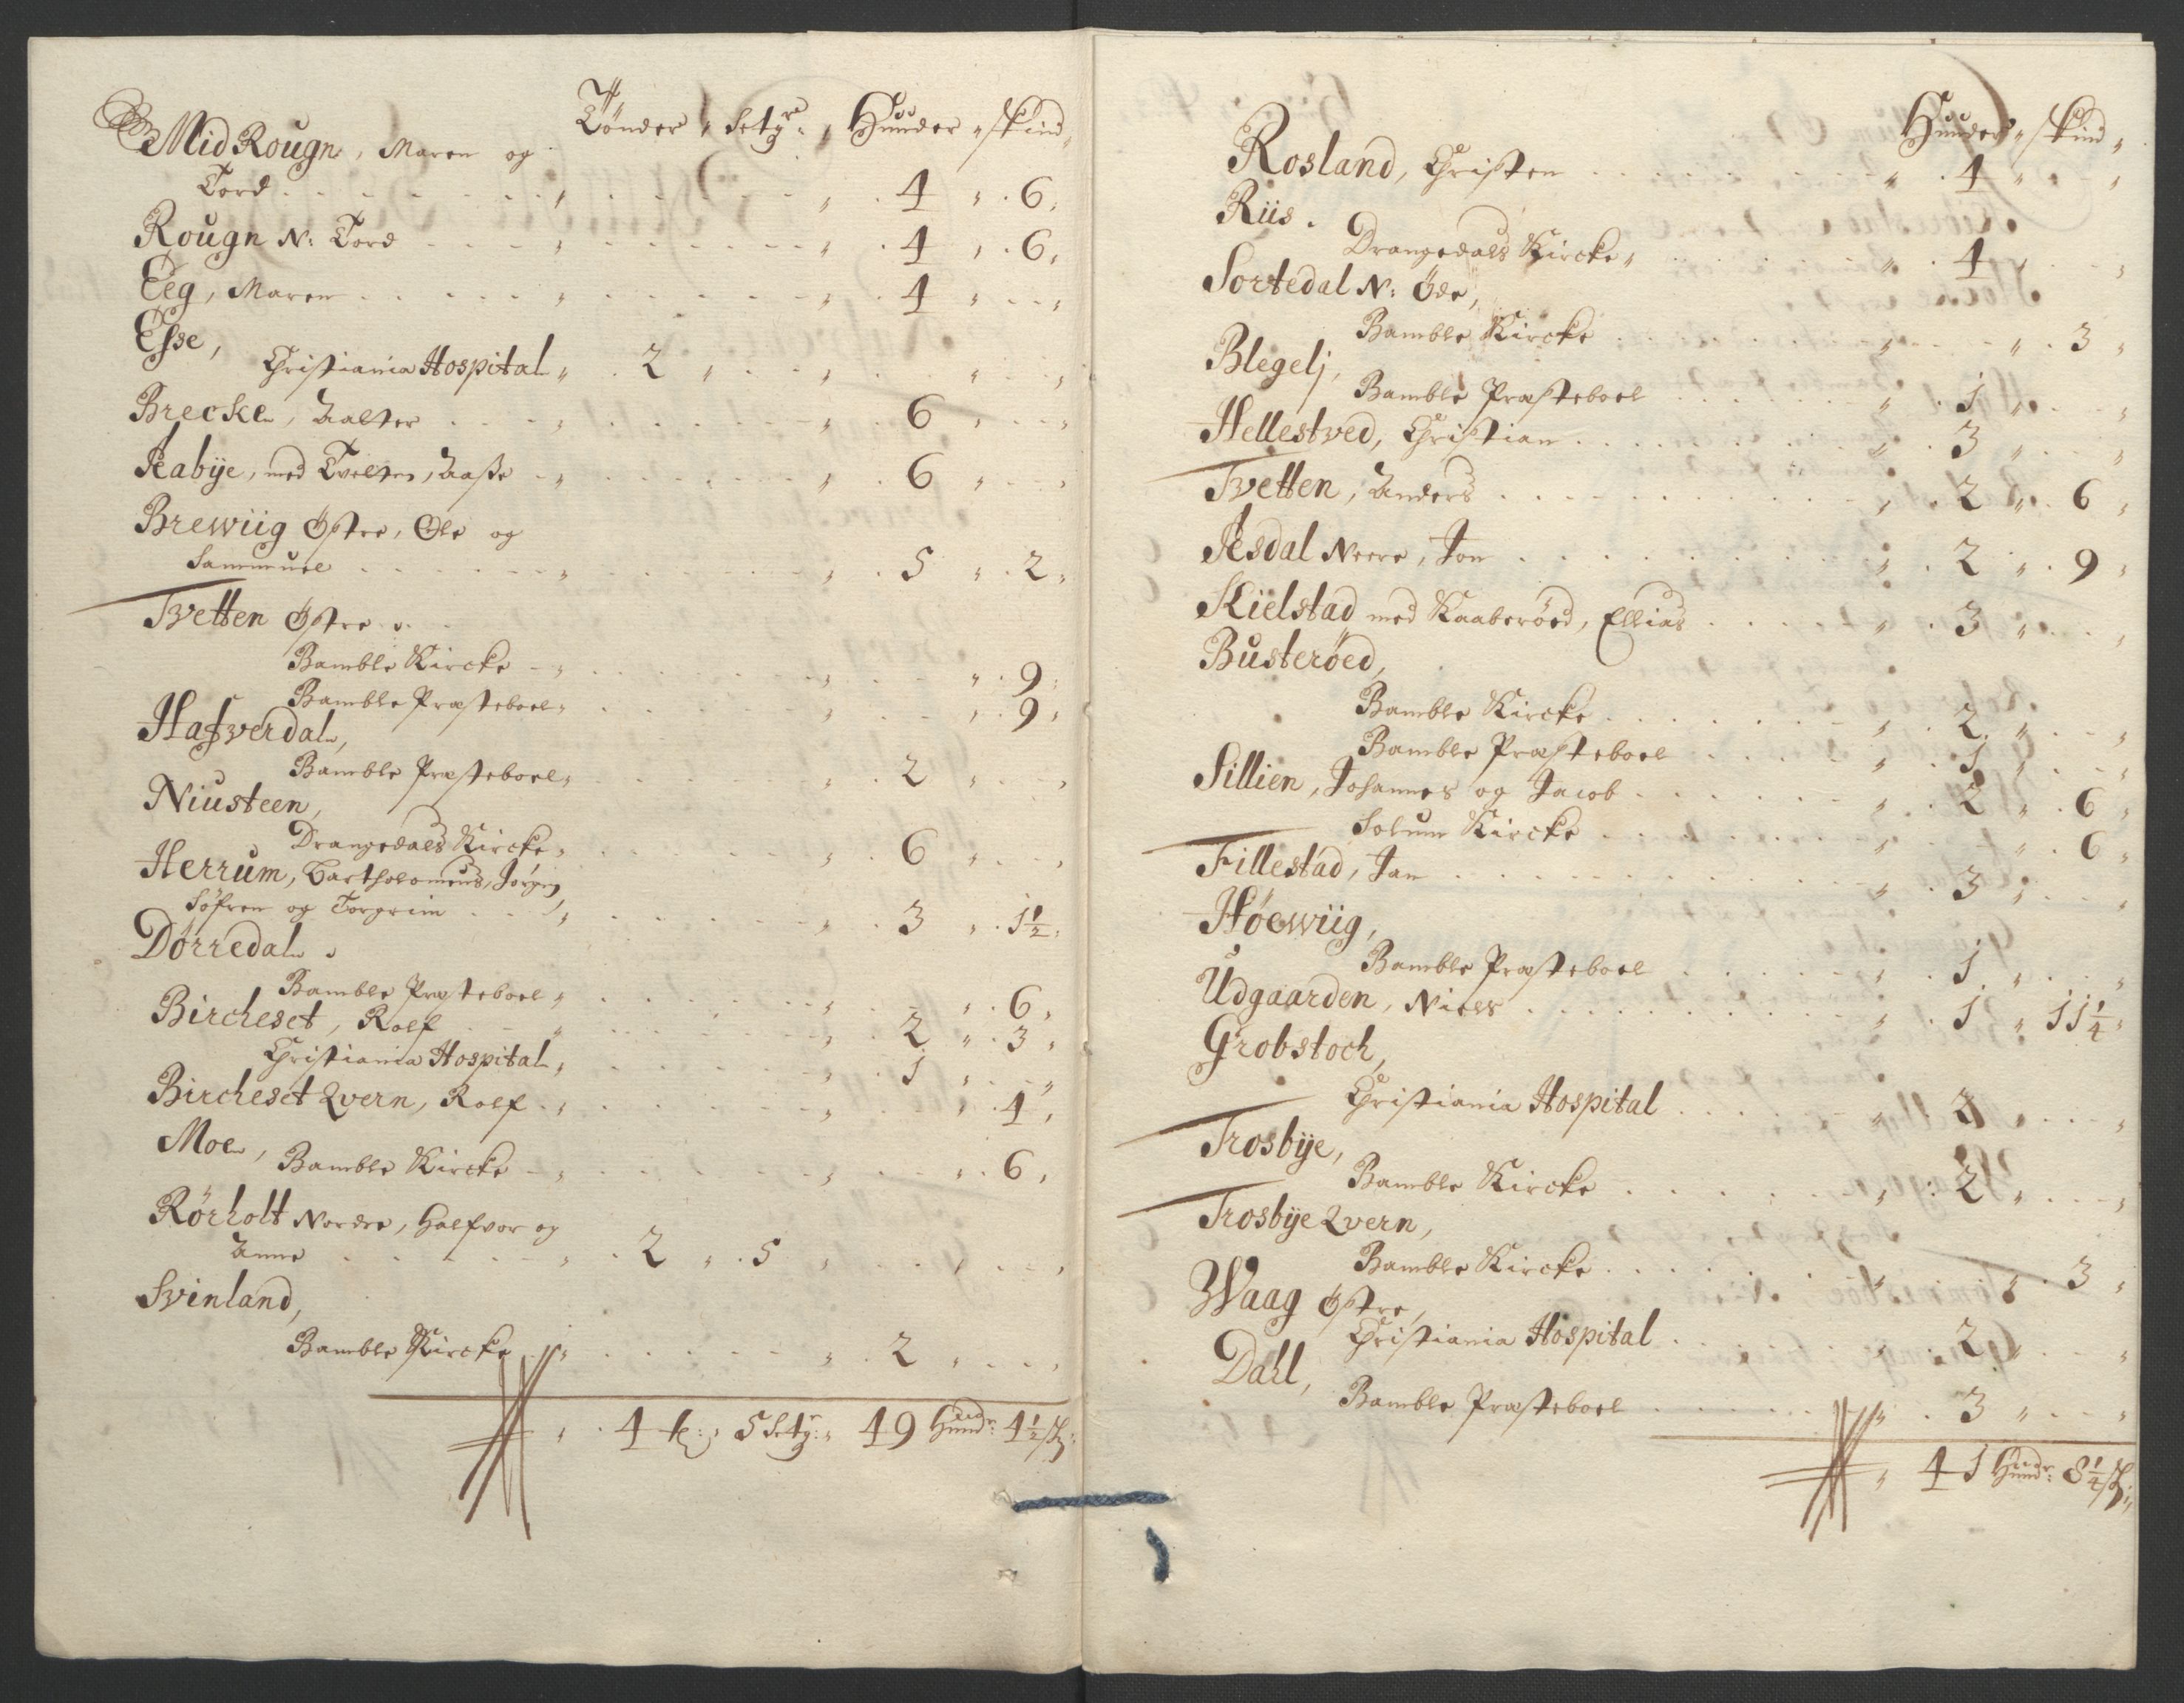 Tönder, Setgr: Hunder, skind
Mid Rougn, Maren og
Tord 4 6
Rougn N: Tord 4 6
Eeg, Maren 4
Esse,
Christiania Hospital 2
Brecke, Halter 6
Aabÿe, med Tvelten, Aasse 6
Brewiig Östre, Ole og
Sammuel 5 2
Tvetten Östre
Bamble Kircke 9
Bamble Præsteboel 9
Hafwerdal,
Bamble Præsteboel 2
Niusteen,
Drangedals Kircke 6
Herrum, Bartholomeus, Jörgen,
Söfren og Torgrim 3 1½
Dörredal
Bamble Præsteboel 6
Bircheset, Rolf 2 3
Christiania Hospital 1
Bircheset Qvern, Rolf 4
Moe, Bamble Kircke 6
Rörholt Nordre, Halfvor og
Anne 2 5
Svinland,
Bamble Kircke 2
4 t: 5 Setg: 49 Hundr: 4½ sk:
Hunder, skind
Rosland, Christen 4
Riis.
Drangedals Kircke 4
Sortedal N: Öde,
Bamble Kircke 3
Blegelj,
Bamble Præsteboel 1
Hellestved, Christian 3
Tvetten, Anders 2 6
Aasdal Neere, Jon 2 9
Kielstad med Kaaberöed, Ellias 3
Busteröed,
Bamble Kircke 2
Bamble Præsteboel 1
Sillien, Johannes og Jacob 2 6
Solum Kircke 6
Fillestad, Jan 3
Höewiig,
Bamble Præsteboel 1
Udgaarden, Niels 1 11¼
Grobstoch,
Christiania Hospital
Trosbÿe,
Bamble Kircke 2
Trosbÿe Qvern,
Bamble Kircke 3
Waag Östre,
Christiania Hospital 2
Dahl,
Bamble Præsteboel 3
41 Hundr: 8¼ sk: